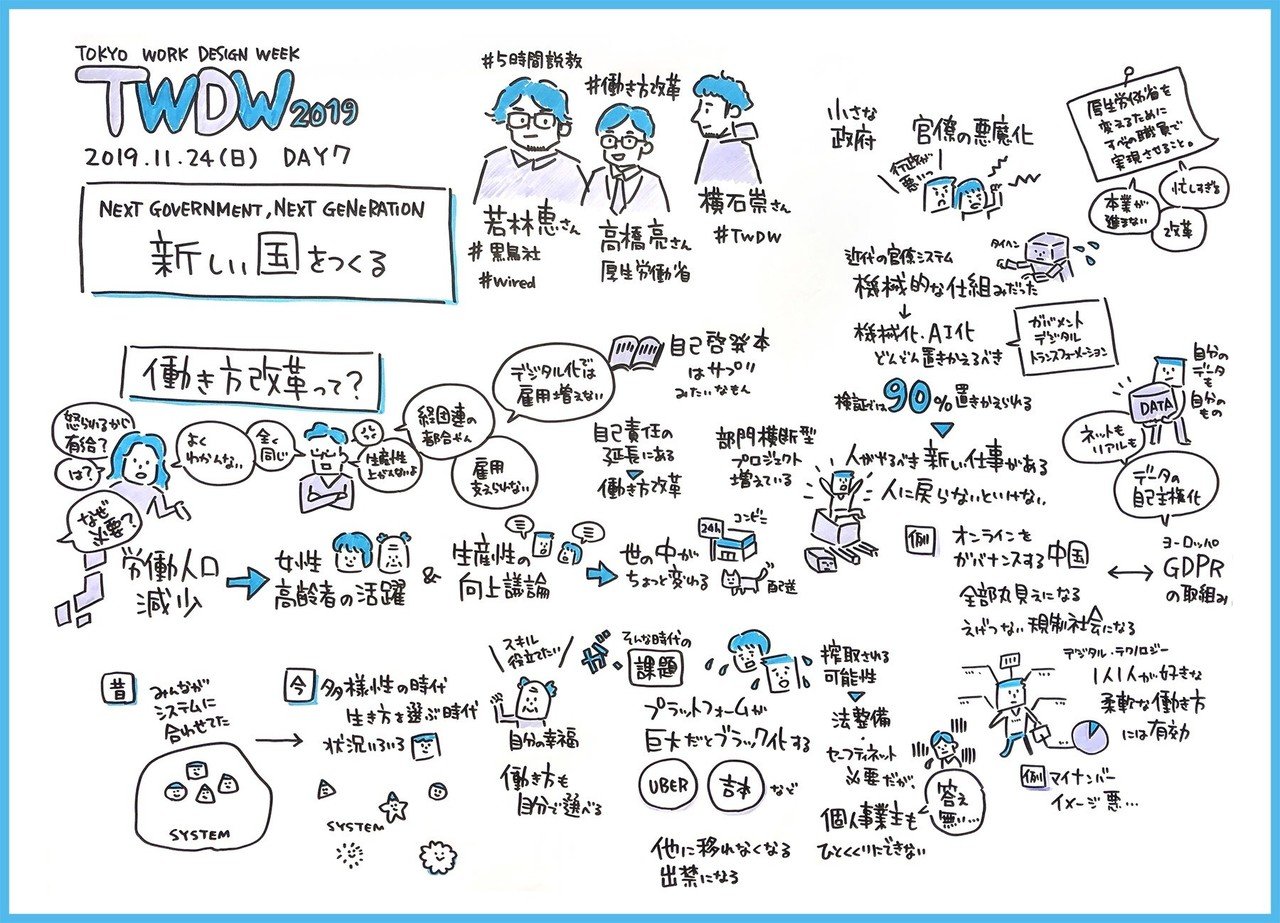 TOKYO WORK DESIGN WEEK
TWDW2019
2019.11.24(日) DAY7
NEXT GOVERNMENT, NEXT GENERATION
新しい国をつくる
#5時間説教
#働き方改革
若林恵さん
#黒鳥社
#wired
高橋亮さん
厚生労働省
横石崇さん
#TWDW
小さな
政府
官僚の悪魔化
行政が
悪いっ
厚生労働省を
変えるために
すべての職員で
実現させること。
忙しすぎる
本業が
進まない
改革
タイヘン
近代の官僚システム
機械的な仕組みだった
↓
機械化・AI化
どんどん置きかえるべき
ガバメント
デジタル
トランスフォーメーション
検証では90%置きかえられる
人がやるべき新しい仕事がある
人に戻らないといけない。
自分の
データ
も
自分の
もの
DATA
ネットも
リアルも
データの
自己主権化
例
オンラインを
ガバナンスする中国
全部丸見えになる
えげつない規制社会になる
ヨーロッパ
GDPR
の取組み
働き方改革って?
怒られるから
有給?
は?
よく
わかんない
なぜ
必要?
全く
同じ
生産性
上がんないよ
経団連の
都合やん
デジタル化では
雇用増えない
雇用
支えられない
自己啓発本
はサプリ
みたいなもん
自己責任の
延長にある
働き方改革
部門横断型
プロジェクト
増えている
労働人口
減少
女性
高齢者の活躍
&
生産性の
向上議論
世の中が
ちょっと変わる
24h
コンビニ
配送
昔
みんなが
システムに
合わせてた
SYSTEM
今
多様性の時代
生き方を選ぶ時代
状況いろいろ
SYSTEM
スキル
役立てたい
自分の幸福
働き方も
自分で選べる
そんな時代の
課題
プラットフォームが
巨大だとブラック化する
UBER
吉本
など
他に移れなくなる
出禁になる
搾取される
可能性
法整備
・セーフティネット
必要だが、
個人事業主も
ひとくくりにできない
答え
無い…
デジタル・テクノロジー
1人1人が好きな
柔軟な働き方
には有効
例
マイナンバー
イメージ悪…